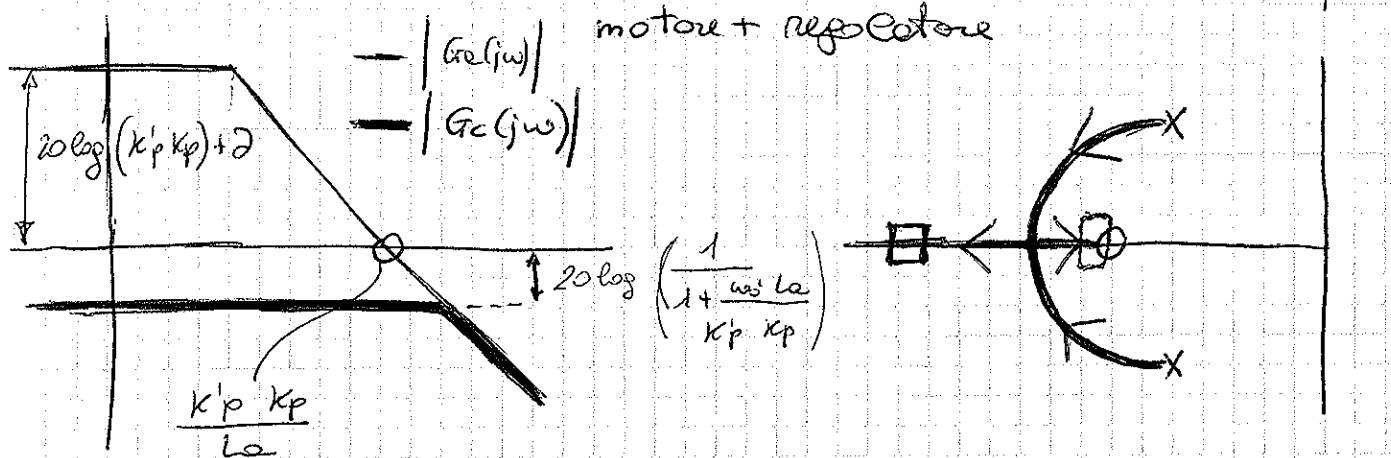 motore + regolatore
|Ga(jω)|
|Gc(jω)|
20 log (K'p Kp) + a
20 log (1 / (1 + ωo' La / K'p Kp))
K'p Kp / La